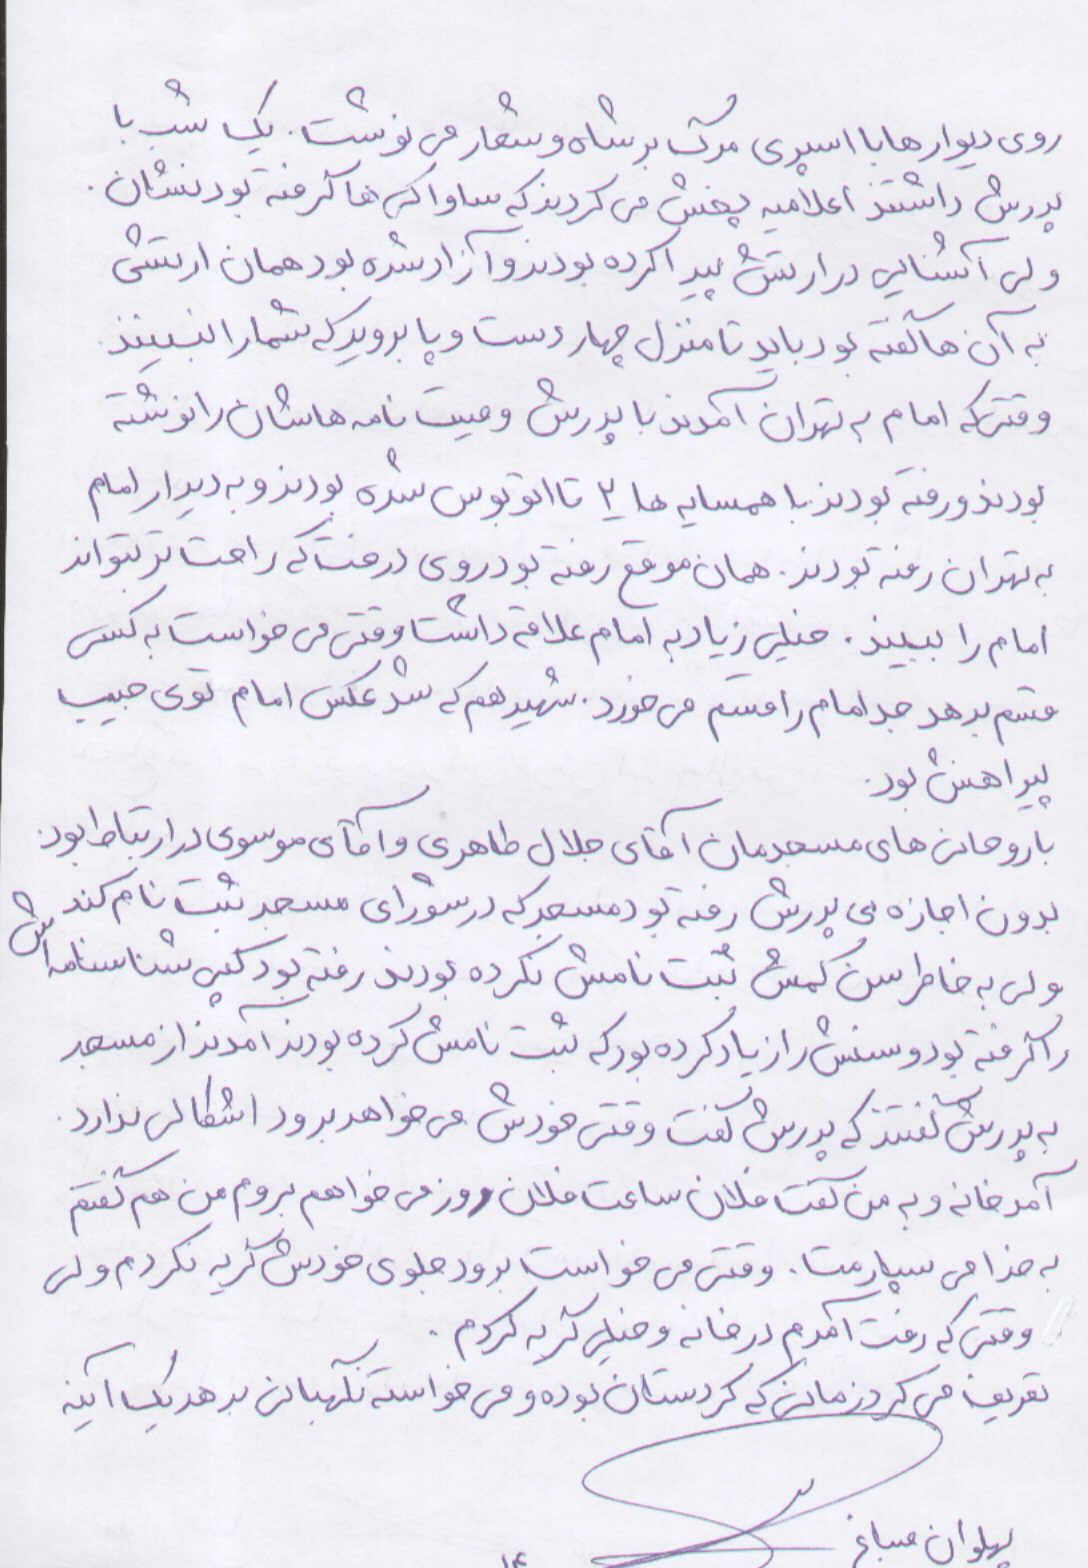 روی دیوارها با اسپری مرگ بر شاه و شعار می نوشت. یک شب با
پدرش داشتند اعلامیه پخش می کردند که ساواکی ها گرفته بودنشان.
ولی آشنایی در ارتش پیدا کرده بودند و آزاد شده بود همان ارتشی
به آن ها گفته بود باید تا منزل چهار دست و پا بروید که شما را نبینند.
وقتی که امام به تهران آمدند با پدرش وصیت نامه هاشان را نوشته
بودند و رفته بودند با همسایه ها ۲ تا اتوبوس شده بودند و به دیدار امام
به تهران رفته بودند. همان موقع رفته بود روی درخت که راحت تر بتواند
امام را ببیند. خیلی زیاد به امام علاقه داشت وقتی می خواست به کسی
قسم بدهد جد امام را قسم می خورد. شهید هم که شد عکس امام توی جیب
پیراهنش بود.
با روحانی های مسجدمان آقای جلال طاهری و آقای موسوی در ارتباط بود.
بدون اجازه ی پدرش رفته بود مسجد که در شورای مسجد ثبت نام کند
ولی به خاطر سن کمش ثبت نامش نکرده بودند رفته بود کپی شناسنامه اش
را گرفته بود و سنش را زیاد کرده بود که ثبت نامش کرده بودند آمدند از مسجد
به پدرش گفتند که پدرش گفت وقتی خودش می خواهد برود اشکالی ندارد.
آمد خانه و به من گفت فلان ساعت فلان روز می خواهم بروم من هم گفتم
به خدا می سپارمت. وقتی می خواست برود جلوی خودش گریه نکردم ولی
وقتی که رفت آمدم در خانه و خیلی گریه کردم.
تعریف می کرد زمانی که کردستان بوده و می خواسته نگهبانی بدهد یک آیینه
پهلوان صباغ
۱۴